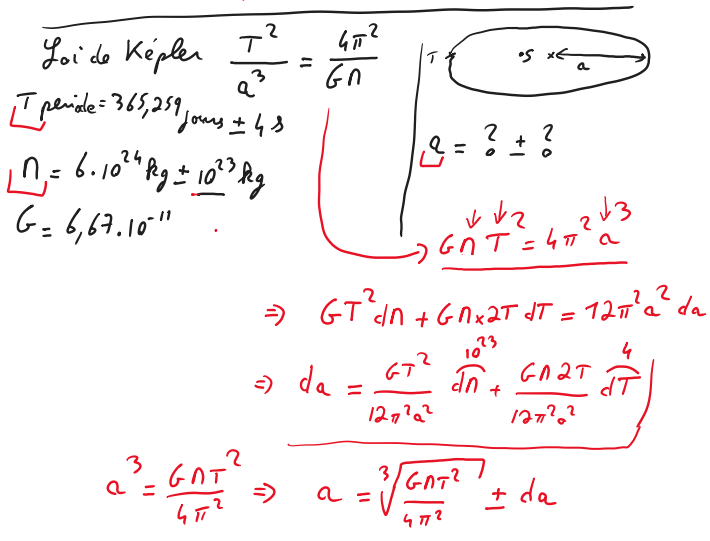 Loi de Képler T² / a³ = 4π² / GM
T → S a
T periode = 365,259 jours ± 4 s
a = ? ± ?
M = 6.10²⁴ kg ± 10²³ kg
G = 6,67.10⁻¹¹
→ GMT² = 4π² a³
⇒ GT² dM + GM×2T dT = 12π² a² da
⇒ da = GT² / 12π²a² dM (10²³) + GM2T / 12π²a² dT (4)
a³ = GMT² / 4π² ⇒ a = ∛(GMT² / 4π²) ± da